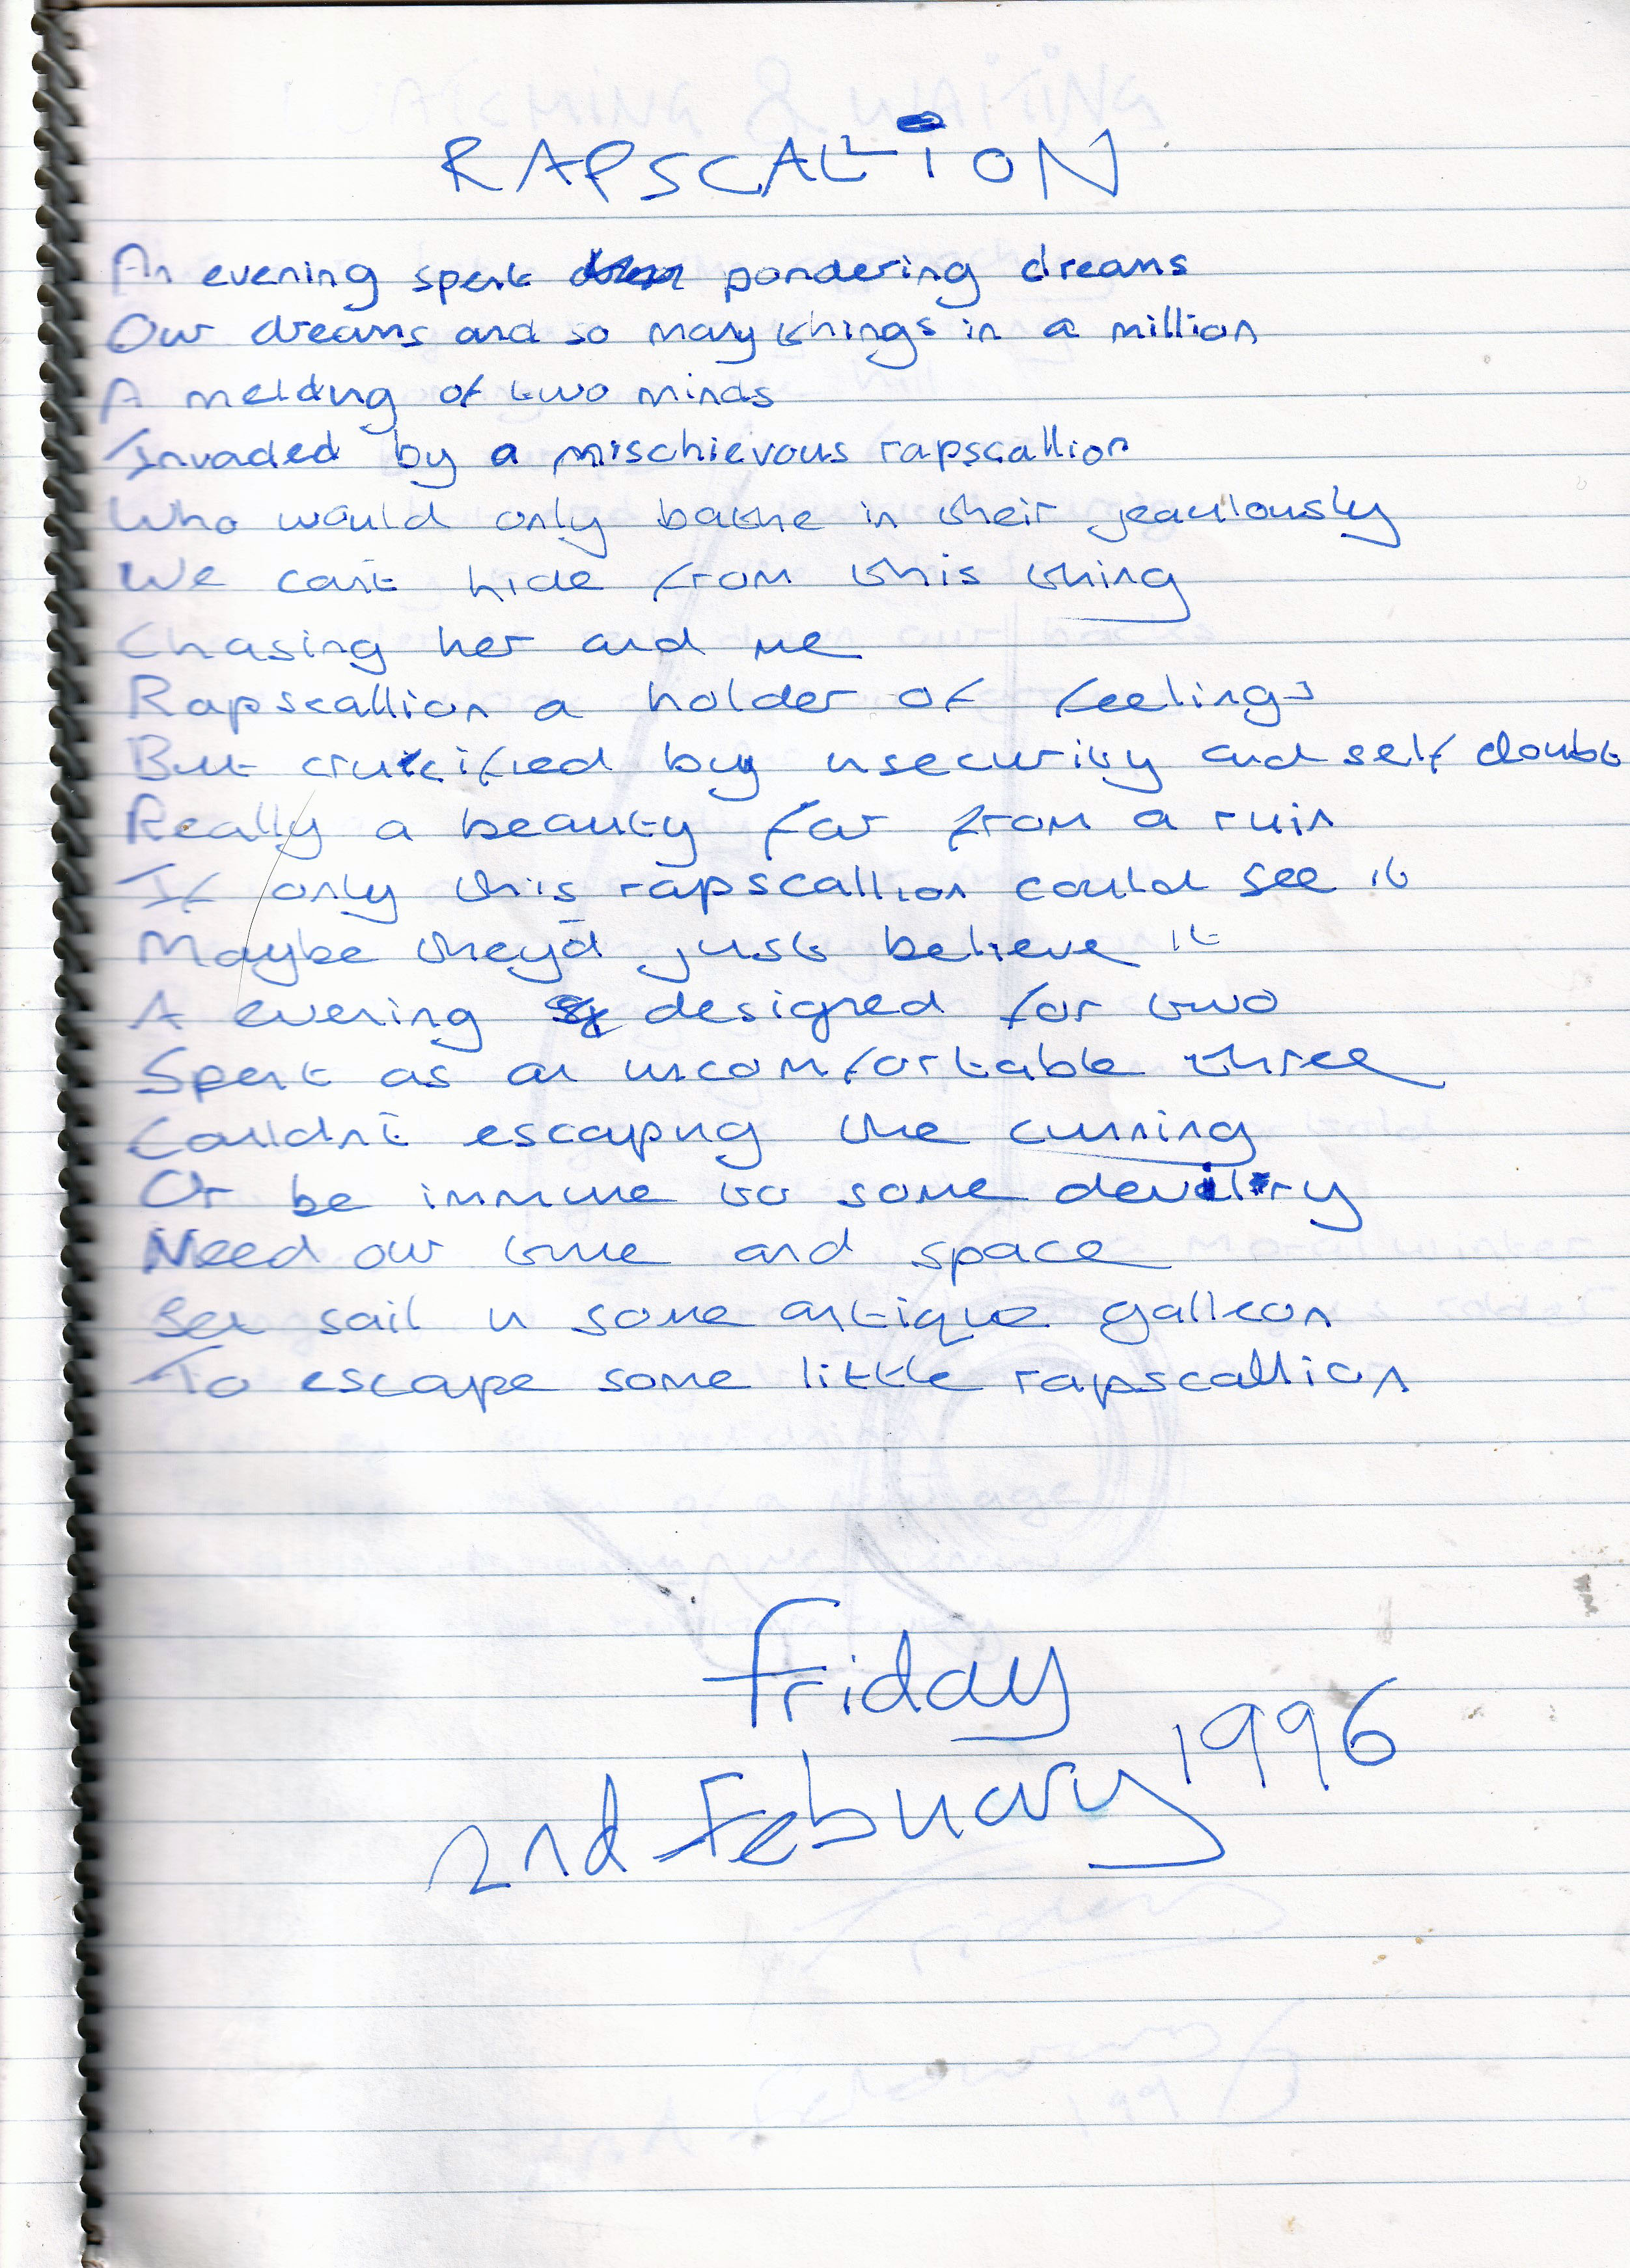 RAPSCALLiON
An evening spent pondering dreams
Our dreams and so many things in a million
A melding of two minds
Invaded by a mischievous rapscallion
Who would only bathe in their jeaulously
We can't hide from this thing
Chasing her and me
Rapscallion a holder of feelings
But crucified by insecurity and self doubt
Really a beauty far from a ruin
If only this rapscallion could see it
Maybe they'd just believe it
A evening designed for two
Spent as an uncomfortable three
Couldn't escaping the cunning
Or be immune to some devilry
Need our time and space
Set sail in some antique galleon
To escape some little rapscallion
Friday
2nd Febuary 1996